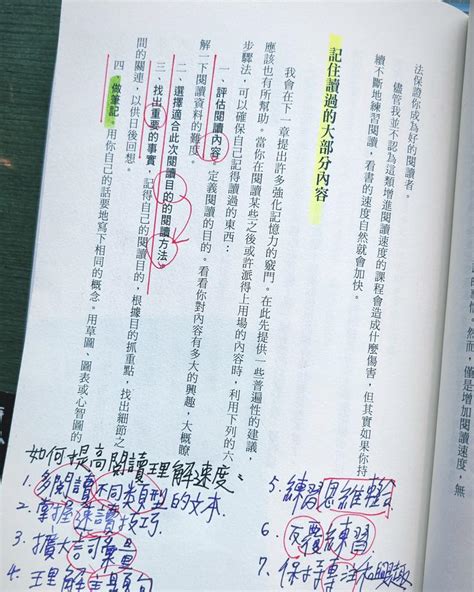 法保證你成為好的閱讀者。
儘管我並不認為這類增進閱讀速度的課程會造成什麼傷害,但其實如果你持
續不斷地練習閱讀,看書的速度自然就會加快。
記住讀過的大部分內容
我會在下一章提出許多強化記憶力的竅門。在此先提供一些普遍性的建議,
應該也有所幫助。當你在閱讀某些之後或許派得上用場的內容時,利用下列的六
步驟法,可以確保自己記得讀過的東西:
一、評估閱讀內容。定義閱讀的目的。看看你對內容有多大的興趣,大概瞭
解一下閱讀資料的難度。
二、選擇適合此次閱讀目的的閱讀方法。
三、找出重要的事實,記得自己的閱讀目的,根據目的抓重點,找出細節之
間的關連,以供日後回想。
四、做筆記。用你自己的話要地寫下相同的概念。用草圖、圖表或心智圖的
然而,僅是增加閱讀速度,無
如何提高閱讀理解速度:
1. 多閱讀不同類型的文本
2. 掌握速讀技巧
3. 擴大詞彙量
4. 理解主題句
5. 練習思維整合
6. 反覆練習
7. 保持專注和興趣